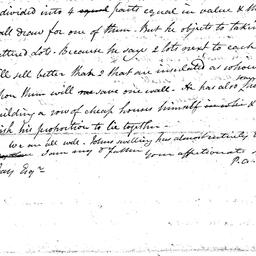 divided into 4 equal parts equal in value & th
all draw for one of them. But he objects to taki
ttered Lots. Because he says 2 lots next to each
ll sell better than 2 that are insulated as whoev
upon them will save one wall. He has also
building a row of cheap houses himself &
ish his proportion to lie together.
We are all well. Johns swelling has almost entirely
I am my d father your affectionate
Jay Esqr P. a.